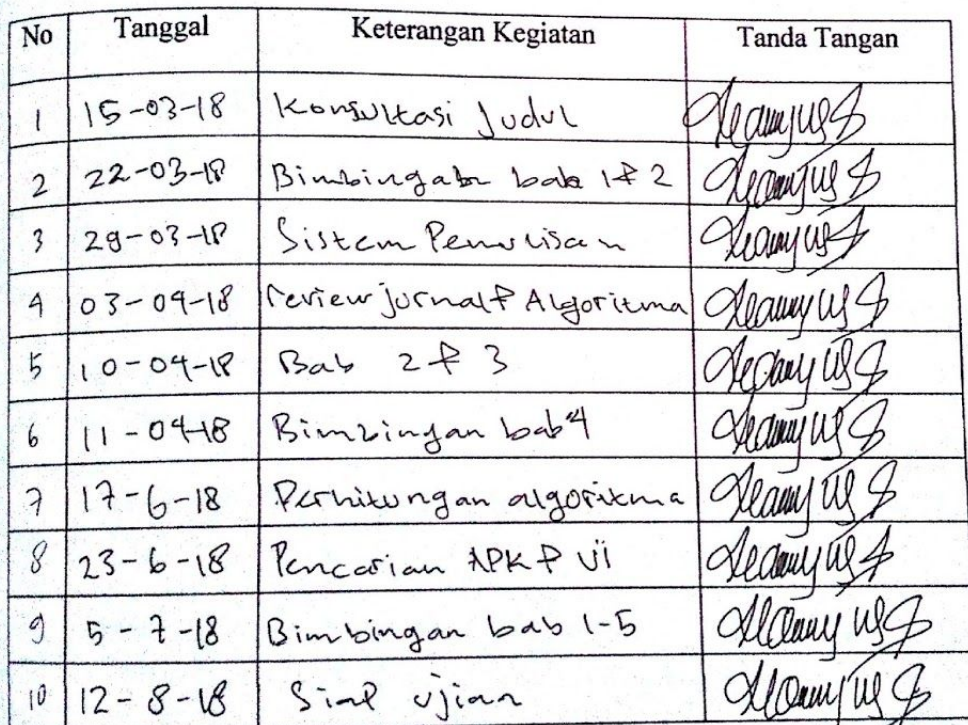 No Tanggal Keterangan Kegiatan Tanda Tangan
1 15-03-18 Konsultasi Judul
2 22-03-18 Bimbingan bab 1 & 2
3 29-03-18 Sistem Penulisan
4 03-04-18 review jurnal & Algoritma
5 10-04-18 Bab 2 & 3
6 11-04-18 Bimbingan bab 4
7 17-6-18 Perhitungan algoritma
8 23-6-18 Pencarian APK & UI
9 5-7-18 Bimbingan bab 1-5
10 12-8-18 Siap ujian